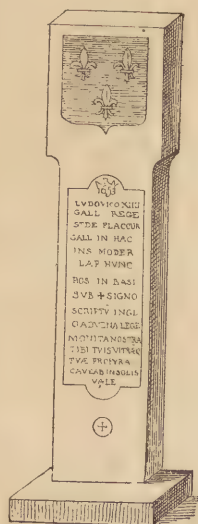 LVDOVICO XIIIJ
GALL REGE
STE DE FLACCUR
GALL IN HAC
INS MODER
LAP HUNC
POS IN BASI
SVB + SIGNO
SCRIPTV INGL
O ADVENA LEGE
MONITA NOSTRA
TIBI TVIS VITÆQ
TVÆ PROFVTVRA
CAVE AB INCOLIS
VALE